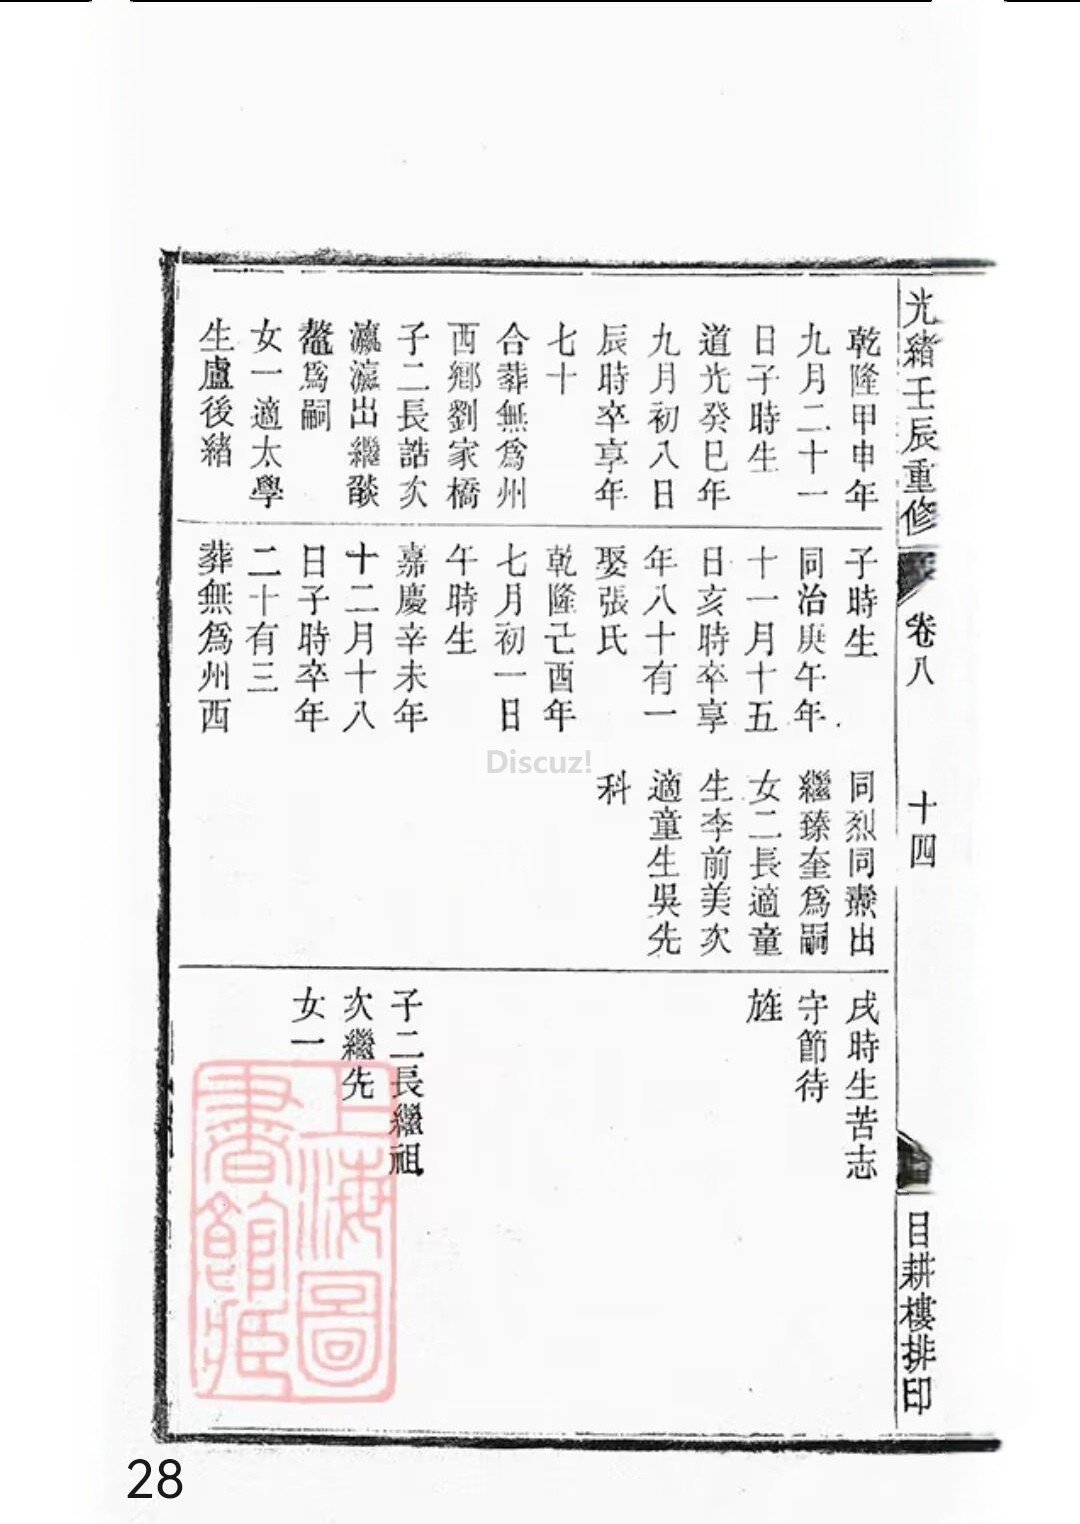 光緒壬辰重修
卷八
十四
目耕樓排印
乾隆甲申年
九月二十一
日子時生
道光癸巳年
九月初八日
辰時卒享年
七十
合葬無爲州
西鄉劉家橋
子二長誥次
瀛瀛出繼燄
鼇爲嗣
女一適太學
生盧後緒
子時生
同治庚午年
十一月十五
日亥時卒享
年八十有一
娶張氏
乾隆己酉年
七月初一日
午時生
嘉慶辛未年
十二月十八
日子時卒年
二十有三
葬無爲州西
同烈同燾出
繼臻奎爲嗣
女二長適童
生李前美次
適童生吳先
科
戌時生苦志
守節待
旌
子二長繼祖
次繼先
女一
上海圖
書館藏
Discuz!
28